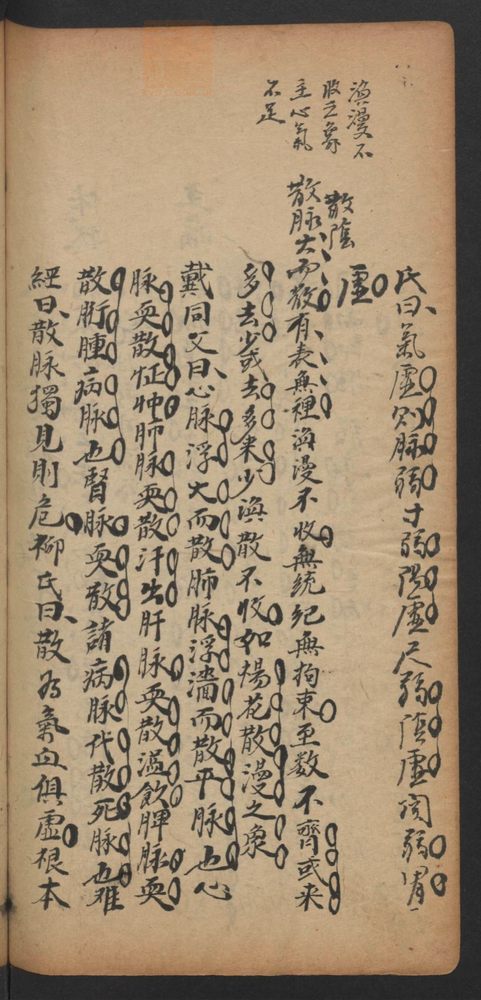 氏曰氣虛則脉弱寸弱陽虛尺弱陰虛関弱胃
虛
散陰
散脉大而散有表無裡渙漫不收無統纪無拘束至数不齊或来
多去少或去多来少渙散不收如楊花散漫之象
戴同父曰心脉浮大而散肺脉浮濇而散平脉也心
脉耎散怔忡肺脉耎散汗出肝脉耎散溢飲脾脉耎
散胻腫病脉也腎脉耎散諸病脉代散死脉也難
經曰散脉獨見則危柳氏曰散為氣血俱虛根本
渙漫不
收之象
主心氣
不足